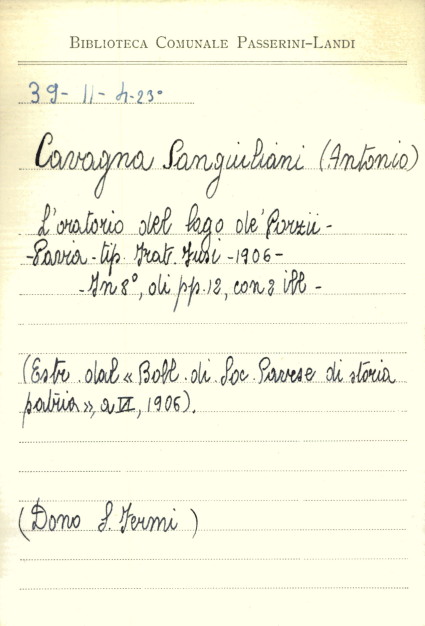 BIBLIOTECA COMUNALE PASSERINI-LANDI
39- 11- 4-23°
Cavagna Sangiuliani (Antonio)
L'oratorio del lago de' Porzii -
- Pavia - tip. Frat. Fusi - 1906 -
- In 8°, di pp. 12, con 2 ill -
(Estr. dal « Boll. di Soc. Pavese di storia
patria », a VI, 1906).
(Dono S. Fermi)